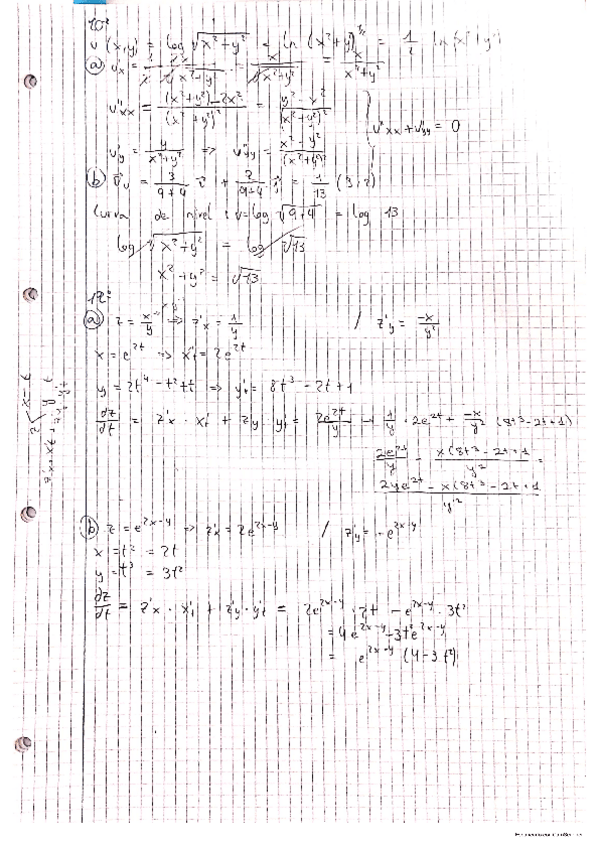 10º
v (x,y) = log √(x²+y²) = ln (x²+y²)^½ = 1/2 ln (x²+y²)
a) v'x = = x/(x²+y²)
v''xx = ((x²+y²) - 2x²)/(x²+y²)² = (y²-x²)/(x²+y²)²
v''xx + v''yy = 0
v'y = y/(x²+y²) => v''yy = (x²-y²)/(x²+y²)²
b) ∇v = 3/(9+4) i + 2/(9+4) j = 1/13 (3,2)
Curva de nivel : v = log √(9+4) = log 13
log √(x²+y²) = log √13
x²+y² = √13
12º
a) z = x/y => z'x = 1/y / z'y = -x/y²
x = e^2t => x't = 2e^2t
y = 2t⁴ - t² + t => y't = 8t³ - 2t + 1
dz/dt = z'x · x't + z'y · y't = 2e^2t/y 1/y · 2e^2t + -x/y² (8t³-2t+1)
2e^2t/y - x(8t³-2t+1)/y² =
(2ye^2t - x(8t³-2t+1)/y²
b) z = e^(2x-y) => z'x = 2e^(2x-y) / z'y = -e^(2x-y)
x = t² = 2t
y = t³ = 3t²
dz/dt = z'x · x't + z'y · y't = 2e^(2x-y) · 2t - e^(2x-y) · 3t²
= 4e^(2x-y) - 3t²e^(2x-y)
= e^(2x-y) (4-3t²)